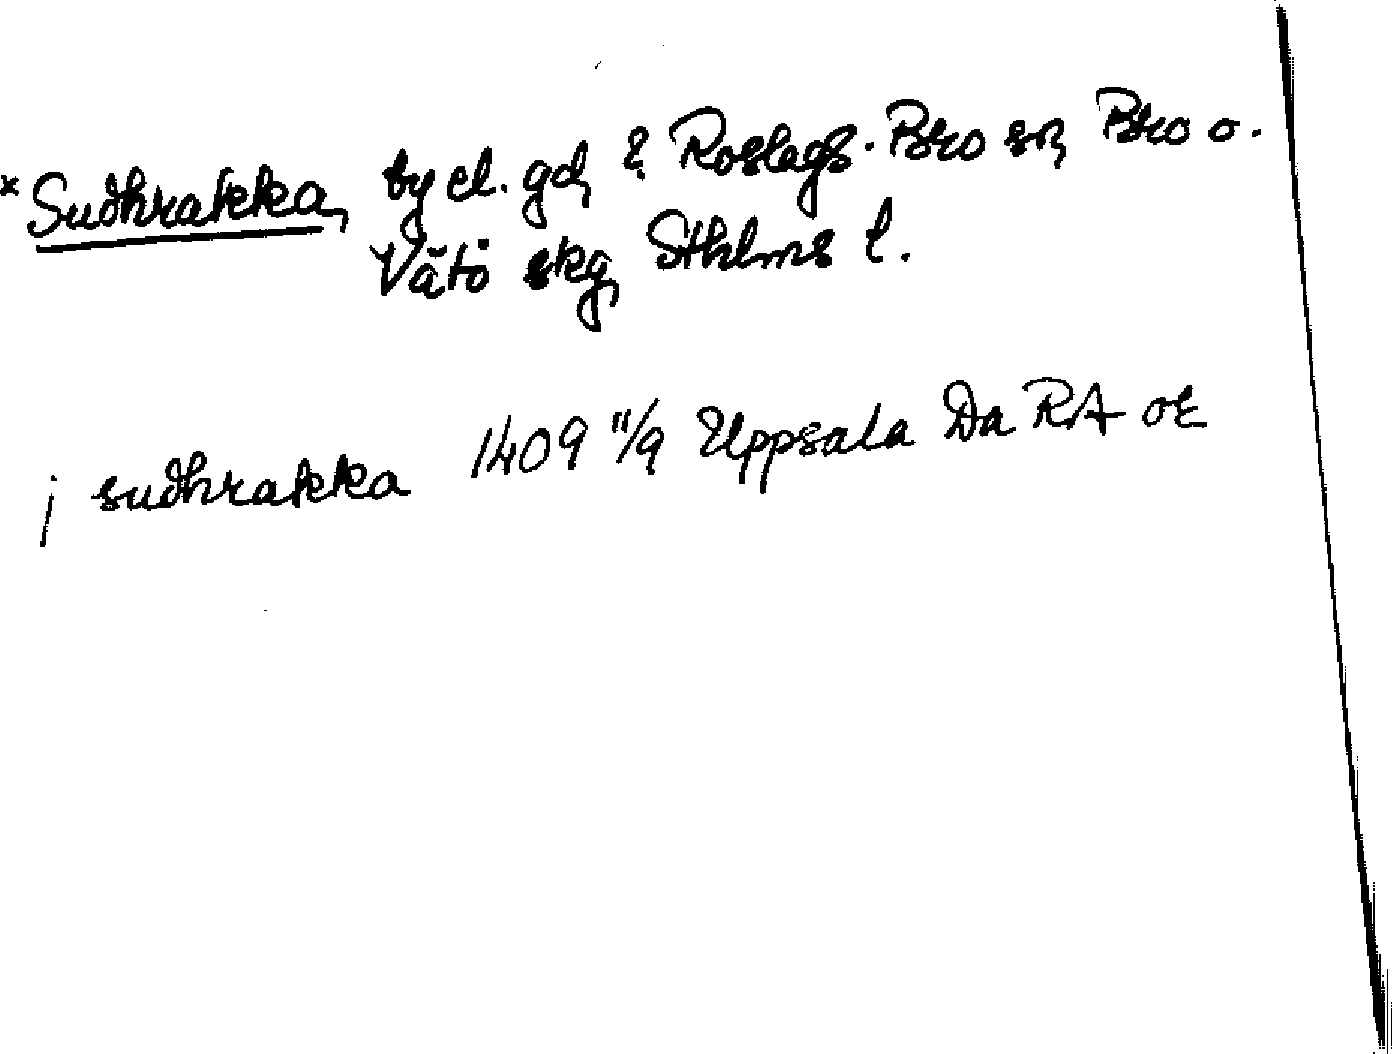 *Sudhrakka, by el. gd, ? Roslags-Bro sn, Bro o.
Vätö skg, Sthlms l.
i sudhrakka 1409 11/9 Uppsala Da RA or